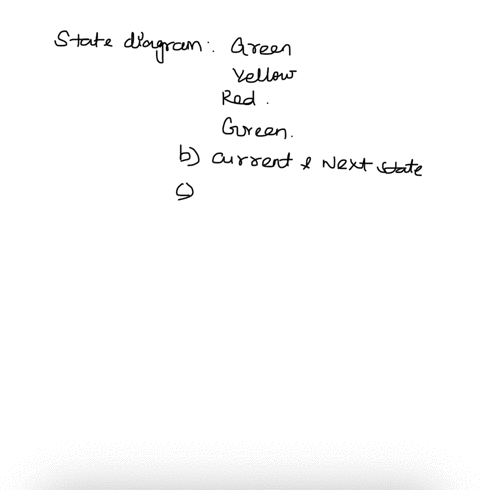 State diagram: Green
Yellow
Red.
Green.
b) Current & Next state
c)